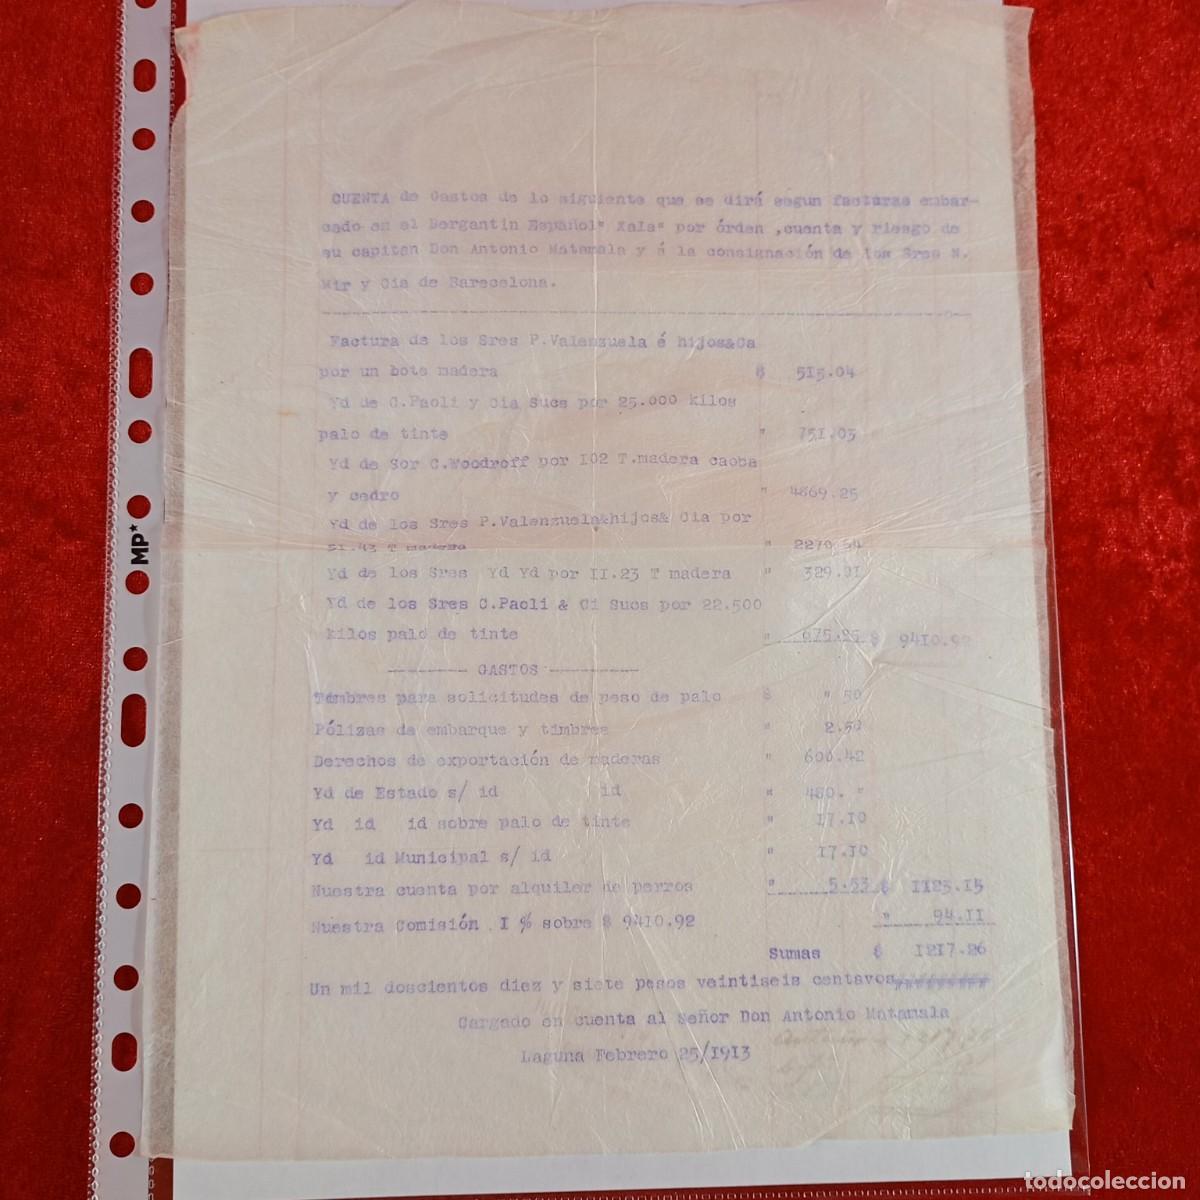 CUENTA de Gastos de lo siguiente que se dirá segun facturas embar-
cado en el Bergantin Español" Kala" por órden ,cuenta y riesgo de
su capitan Don Antonio Matamala y á la consignación de los Sres N.
Mir y Cia de Barecelona.
Factura de los Sres P.Valenzuela é hijos&Ca
por un bote madera $ 515.04
Yd de C.Paoli y Cia Sucs por 25.000 kilos
palo de tinte " 751.03
Yd de Sor C.Woodroff por I02 T.madera caoba
y cedro " 4869.25
Yd de los Sres P.Valenzuela&hijos& Cia por
51.43 T madera " 2270.54
Yd de los Sres Yd Yd por II.23 T madera " 329.81
Yd de los Sres C.Paoli & Ci Sucs por 22.500
kilos palo de tinte " 675.25 $ 94I0.92
-------- GASTOS ---------
Timbres para solicitudes de peso de palo $ " 50
Pólizas de embarque y timbres " 2.50
Derechos de exportación de maderas " 600.42
Yd de Estado s/ id id " 480. "
Yd id id sobre palo de tinte " I7.I0
Yd id Municipal s/ id " I7.I0
Nuestra cuenta por alquiler de perros " 5.53 $ II23.I5
Nuestra Comisión I % sobre $ 94I0.92 " 94.II
Sumas $ I2I7.26
Un mil doscientos diez y siete pesos veintiseis centavos
Cargado en cuenta al Señor Don Antonio Matamala
Laguna Febrero 25/I9I3
MP*
MP*
todocoleccion